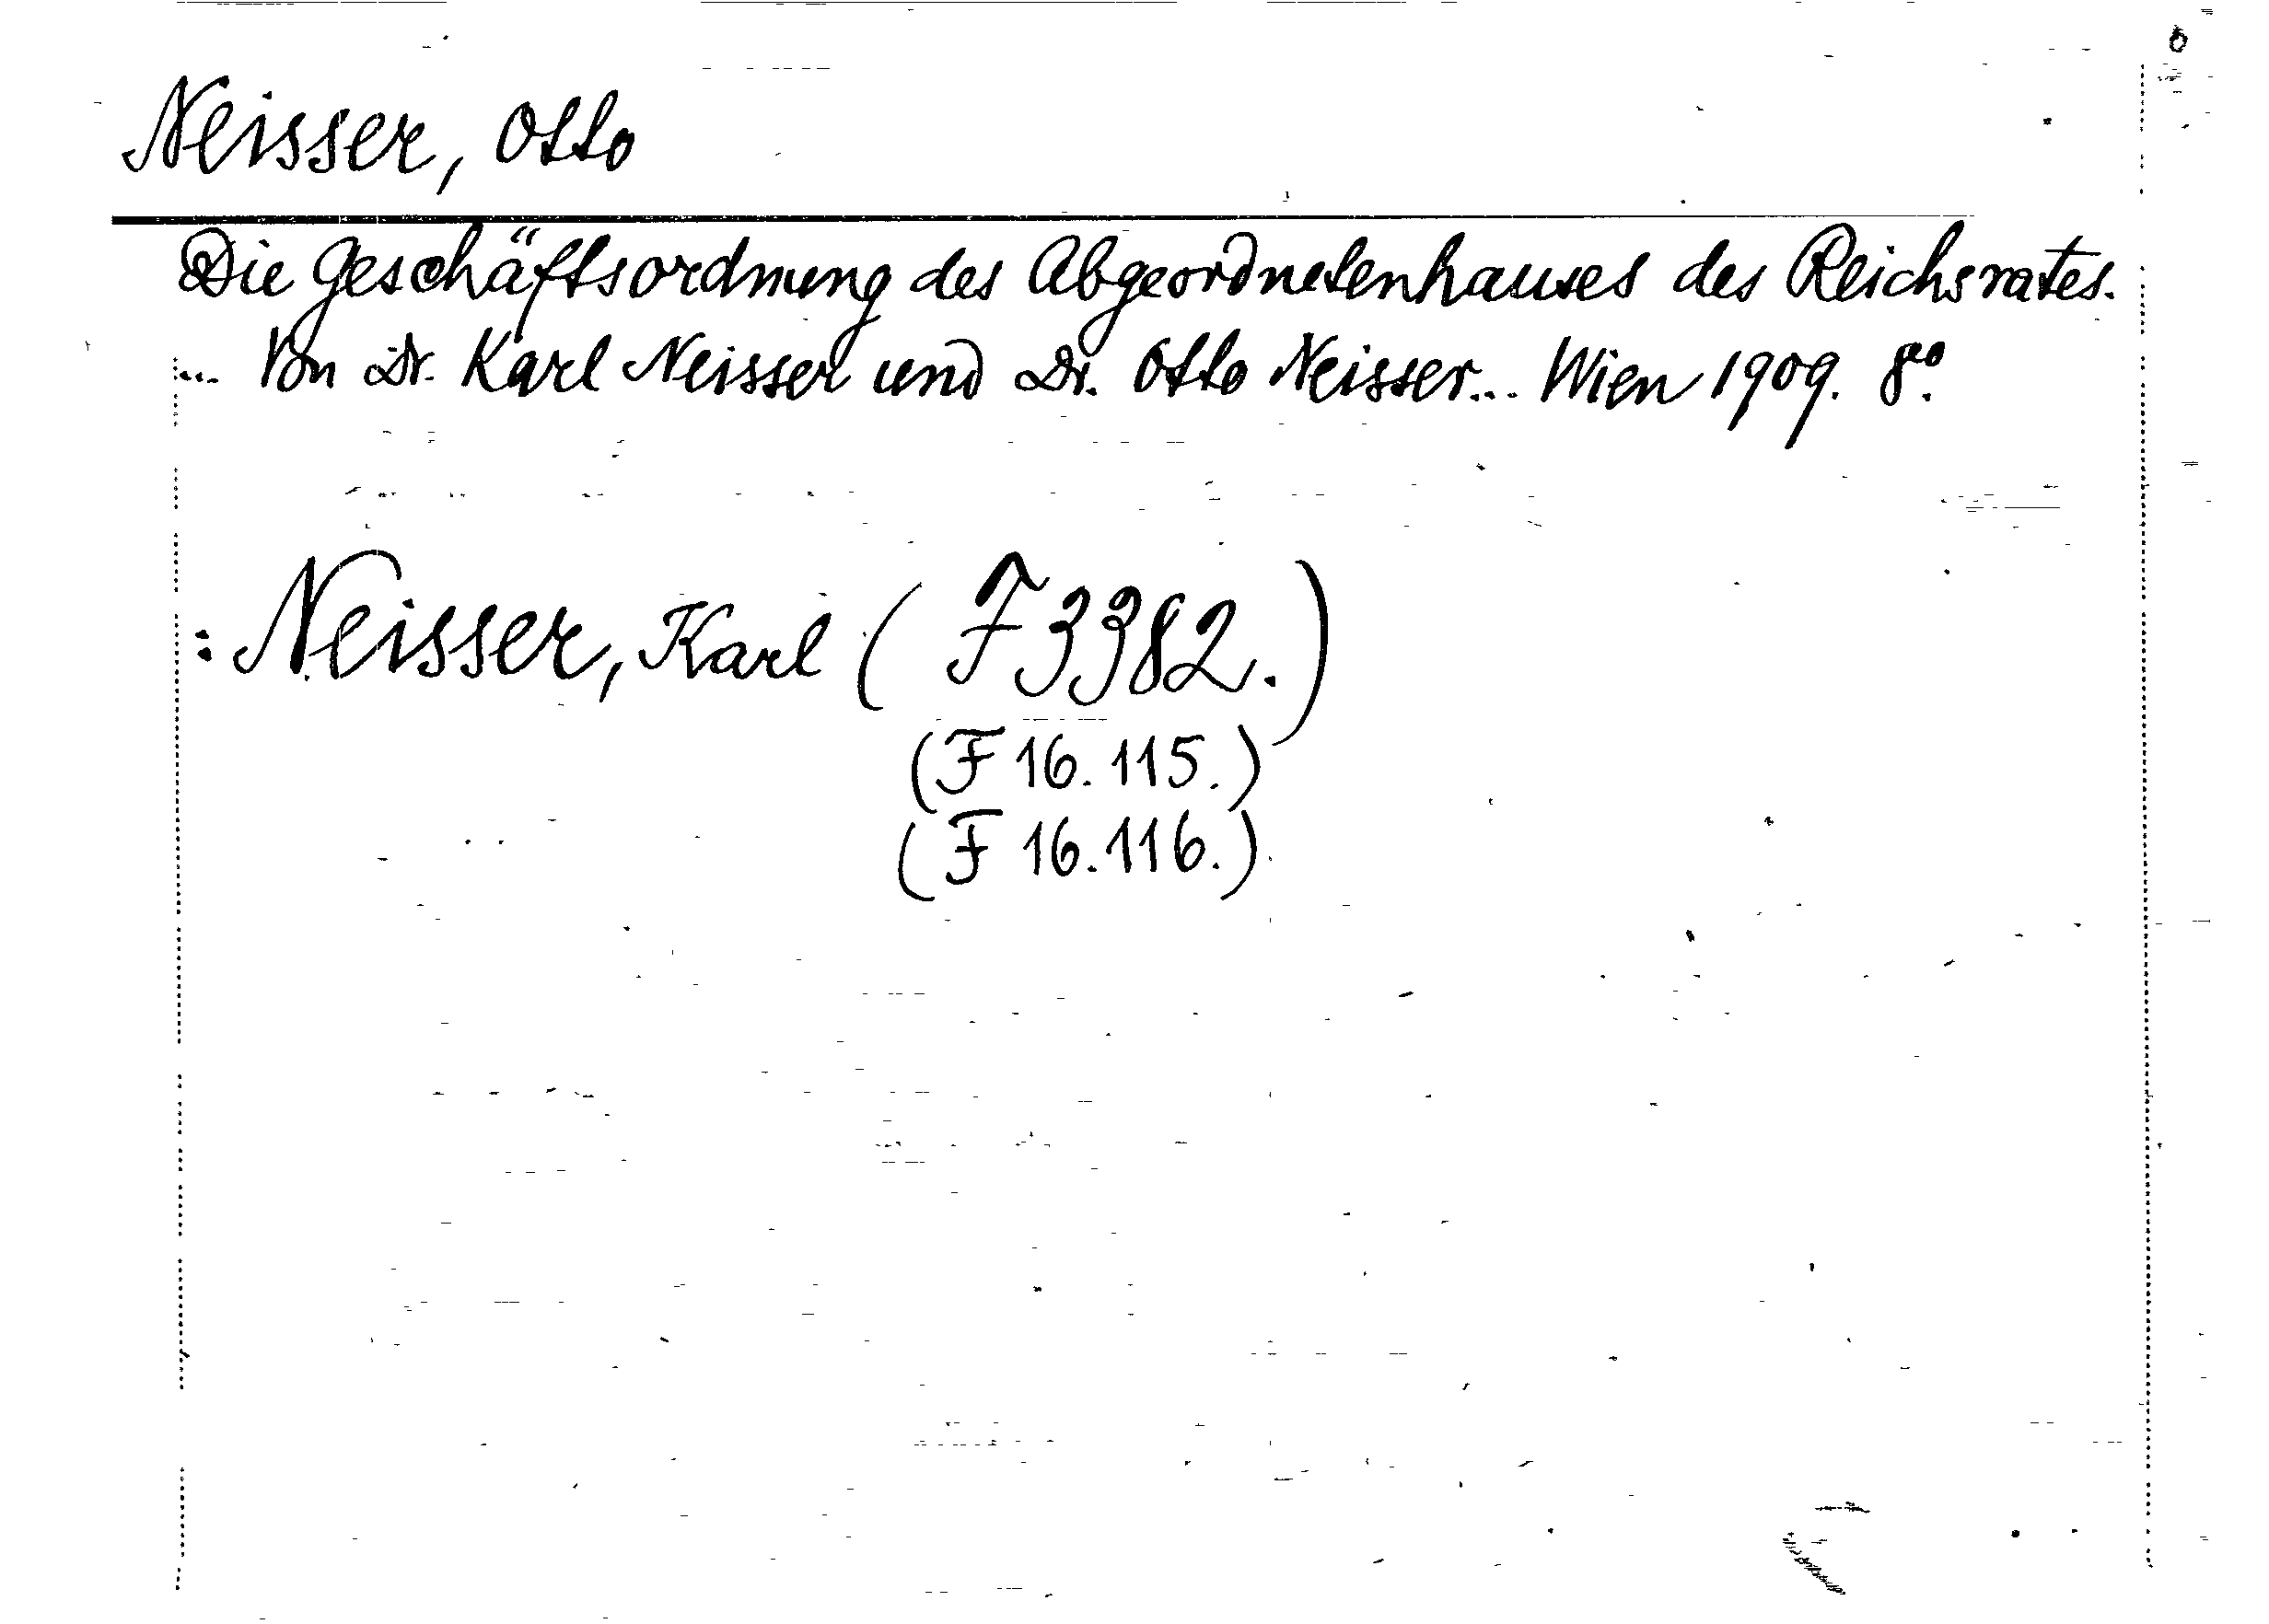 Neisser, Otto
Die Geschäftsordnung des Abgeordnetenhauses des Reichsrates.
... Von Dr. Karl Neisser und Dr. Otto Neisser... Wien 1909. 8º.
: Neisser, Karl (F 3382.)
(F 16.115.)
(F 16.116.)